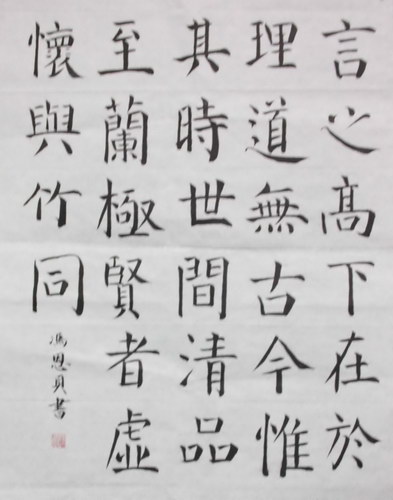 言之高下在於
理道無古今惟
其時世間清品
至蘭極賢者虛
懷與竹同
馮恩貝書